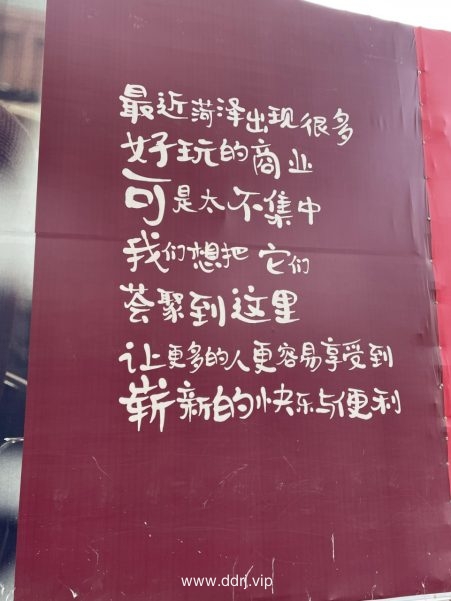 最近菏泽出现很多
好玩的商业
可是太不集中
我们想把它们
荟聚到这里
让更多的人更容易享受到
崭新的快乐与便利
www.ddrj.vip